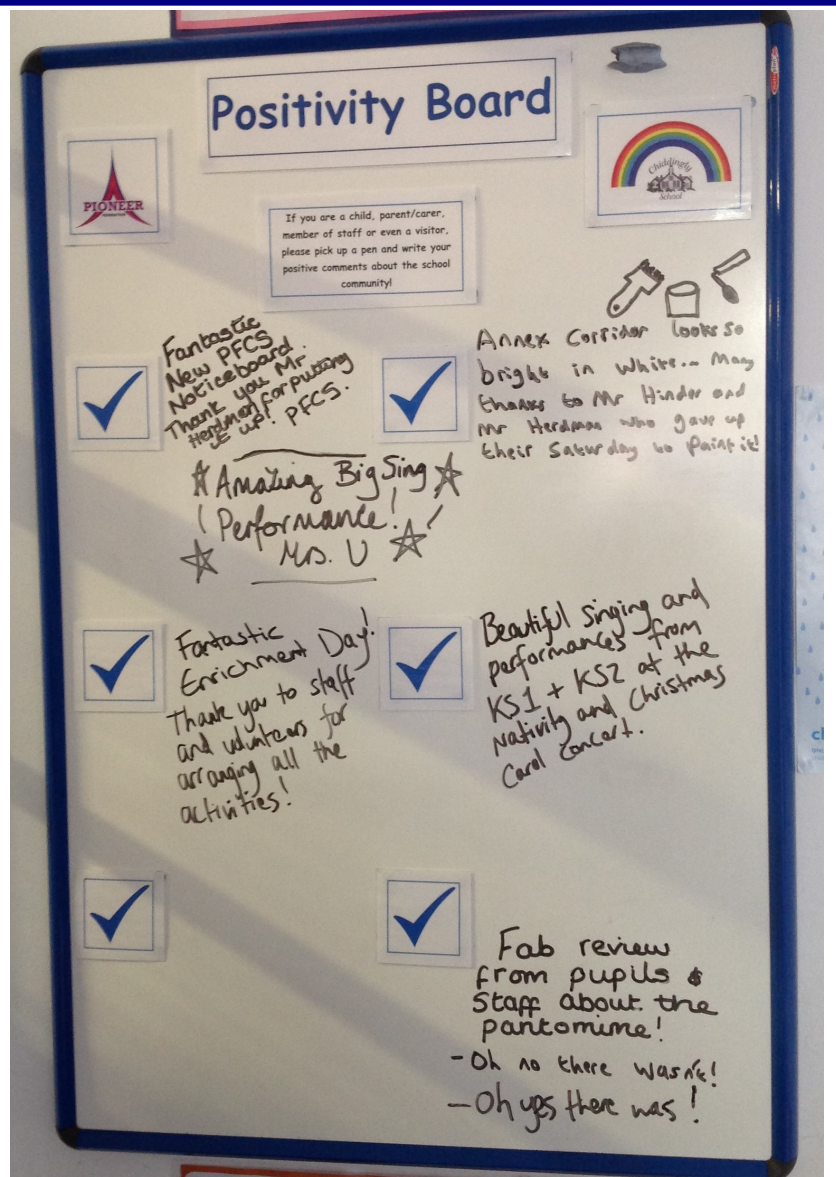 Positivity Board
PIONEER
Chiddingly
School
If you are a child, parent/carer,
member of staff or even a visitor,
please pick up a pen and write your
positive comments about the school
community!
Fantastic
New PFCS
Noticeboard
Thank you Mr.
Herdman for putting
it up! PFCS.
Annex Corridor looks so
bright in White... Many
thanks to Mr Hinder and
Mr Herdman who gave up
their Saturday to Paint it!
Amazing Big Sing
Performance!
Mrs. U
Fantastic
Enrichment Day!
Thank you to staff
and volunteers for
arranging all the
activities!
Beautiful singing and
performances from
KS1 + KS2 at the
Nativity and Christmas
Carol Concert.
Fab review
from pupils &
Staff about the
pantomime!
- Oh no there wasn't!
- Oh yes there was!